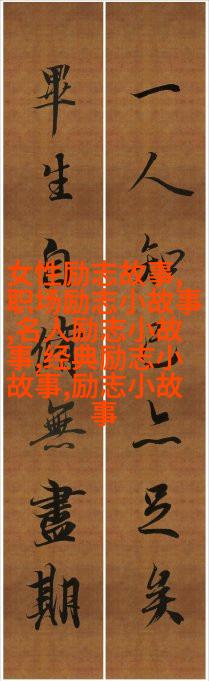 一人知己亦足矣
畢生自修無盡期
女性励志故事,
职场励志小故事
,名人励志小故
事,经典励志小
故事,励志小故
事